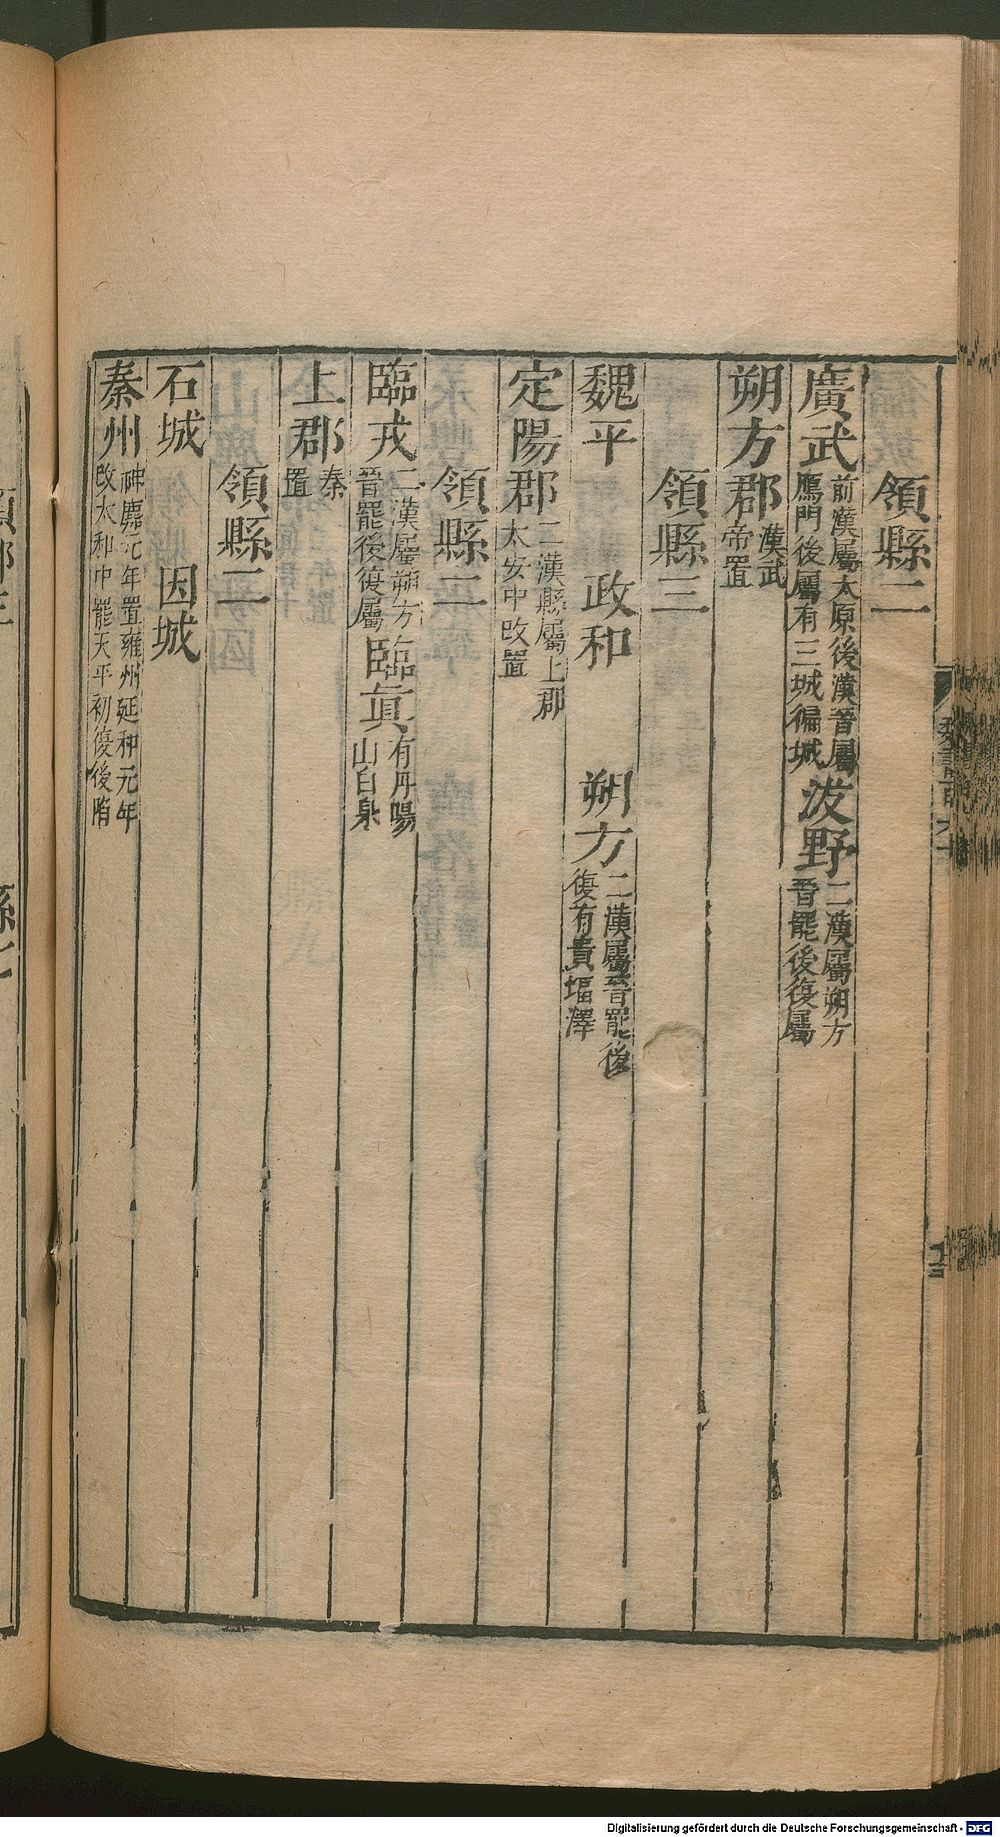 領縣二
廣武前漢屬太原後漢晉屬鴈門後屬有三城徧城沷野二漢屬朔方晉罷後復屬
朔方郡漢武帝置
領縣三
魏平 政和 朔方二漢屬晉罷後復有貴塸澤
定陽郡二漢縣屬上郡太安中改置
領縣二
臨戎二漢屬朔方晉罷後復屬臨眞有丹陽山白泉
上郡秦置
領縣二
石城 因城
秦州神䴥元年置雍州延和元年改太和中罷天平初復後陷
Digitalisierung gefördert durch die Deutsche Forschungsgemeinschaft - DFG